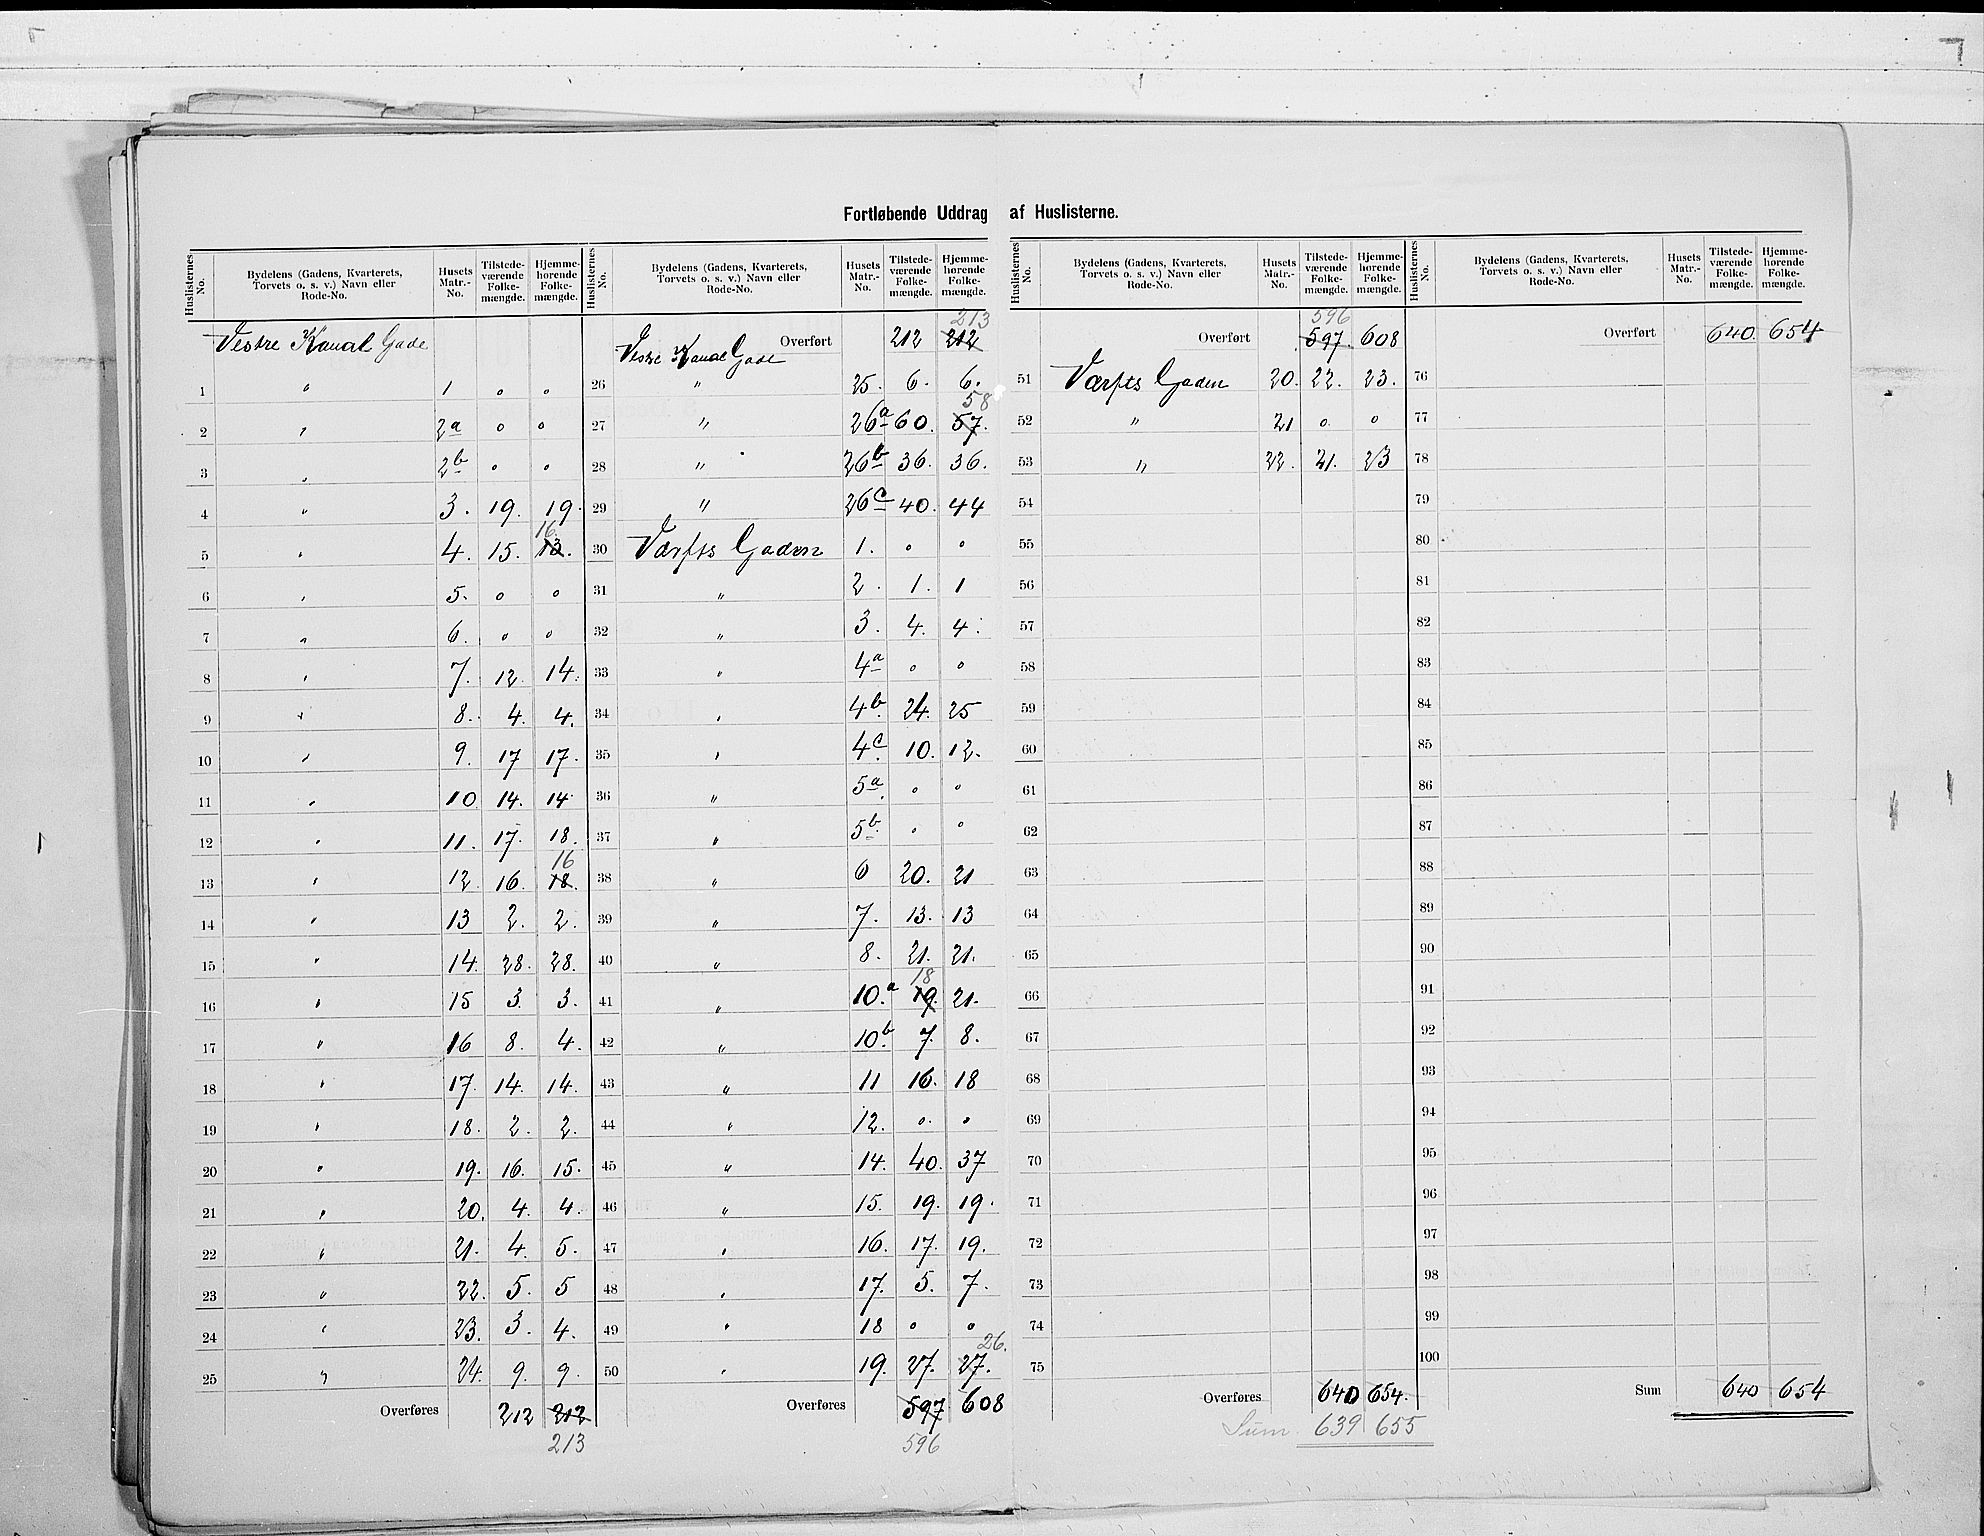 Fortløbende Uddrag af Huslisterne.
Huslisternes No. Bydelens (Gadens, Kvarterets, Torvets o. s. v.) Navn eller Rode-No. Husets Matr.-No. Tilstedeværende Folkemængde. Hjemmehørende Folkemængde.
Vestre Kanal Gade
1 " 1 0 0
2 " 2a 0 0
3 " 2b 0 0
4 " 3. 19. 19.
5 " 4. 15. 13. 16.
6 " 5. 0 0
7 " 6. 0 0
8 " 7. 12. 14.
9 " 8. 4. 4.
10 " 9. 17 17.
11 " 10 14. 14
12 " 11. 17. 18.
13 " 12. 16. 18. 16
14 " 13 2. 2.
15 " 14. 28. 28.
16 " 15 3. 3.
17 " 16 8. 4.
18 " 17. 14. 14.
19 " 18. 2. 2.
20 " 19. 16. 15.
21 " 20. 4. 4.
22 " 21. 4. 5.
23 " 22. 5. 5
24 " 23. 3. 4.
25 " 24. 9. 9.
Overføres 212 212
213
Huslisternes No. Bydelens (Gadens, Kvarterets, Torvets o. s. v.) Navn eller Rode-No. Husets Matr.-No. Tilstedeværende Folkemængde. Hjemmehørende Folkemængde.
213
Overført 212 212
Vestre Kanal Gade
26 " 25. 6. 6.
27 " 26a 60. 57. 58
28 " 26b 36. 36.
29 " 26c 40. 44
30 Værfts Gaden 1. 0 0
31 " 2. 1. 1
32 " 3. 4. 4.
33 " 4a 0 0
34 " 4b. 24. 25
35 " 4c. 10. 12.
36 " 5a. 0 0
37 " 5b. 0 0
38 " 6 20. 21
39 " 7. 13. 13
40 " 8. 21. 21.
41 " 10.a 19. 18 21.
42 " 10b. 7. 8.
43 " 11 16. 18
44 " 12. 0. 0
45 " 14. 40. 37
46 " 15. 19. 19.
47 " 16. 17. 19.
48 " 17. 5. 7.
49 " 18 0 0
50 " 19. 27. 27. 26.
Overføres 597 608
596
Huslisternes No. Bydelens (Gadens, Kvarterets, Torvets o. s. v.) Navn eller Rode-No. Husets Matr.-No. Tilstedeværende Folkemængde. Hjemmehørende Folkemængde.
596
Overført 597. 608
51 Værfts Gaden 20. 22. 23.
52 " 21 0. 0
53 " 22. 21. 23
54
55
56
57
58
59
60
61
62
63
64
65
66
67
68
69
70
71
72
73
74
75
Overføres 640 654.
Sum 639 655
Huslisternes No. Bydelens (Gadens, Kvarterets, Torvets o. s. v.) Navn eller Rode-No. Husets Matr.-No. Tilstedeværende Folkemængde. Hjemmehørende Folkemængde.
Overført 640. 654
76
77
78
79
80
81
82
83
84
85
86
87
88
89
90
91
92
93
94
95
96
97
98
99
100
Sum 640 654